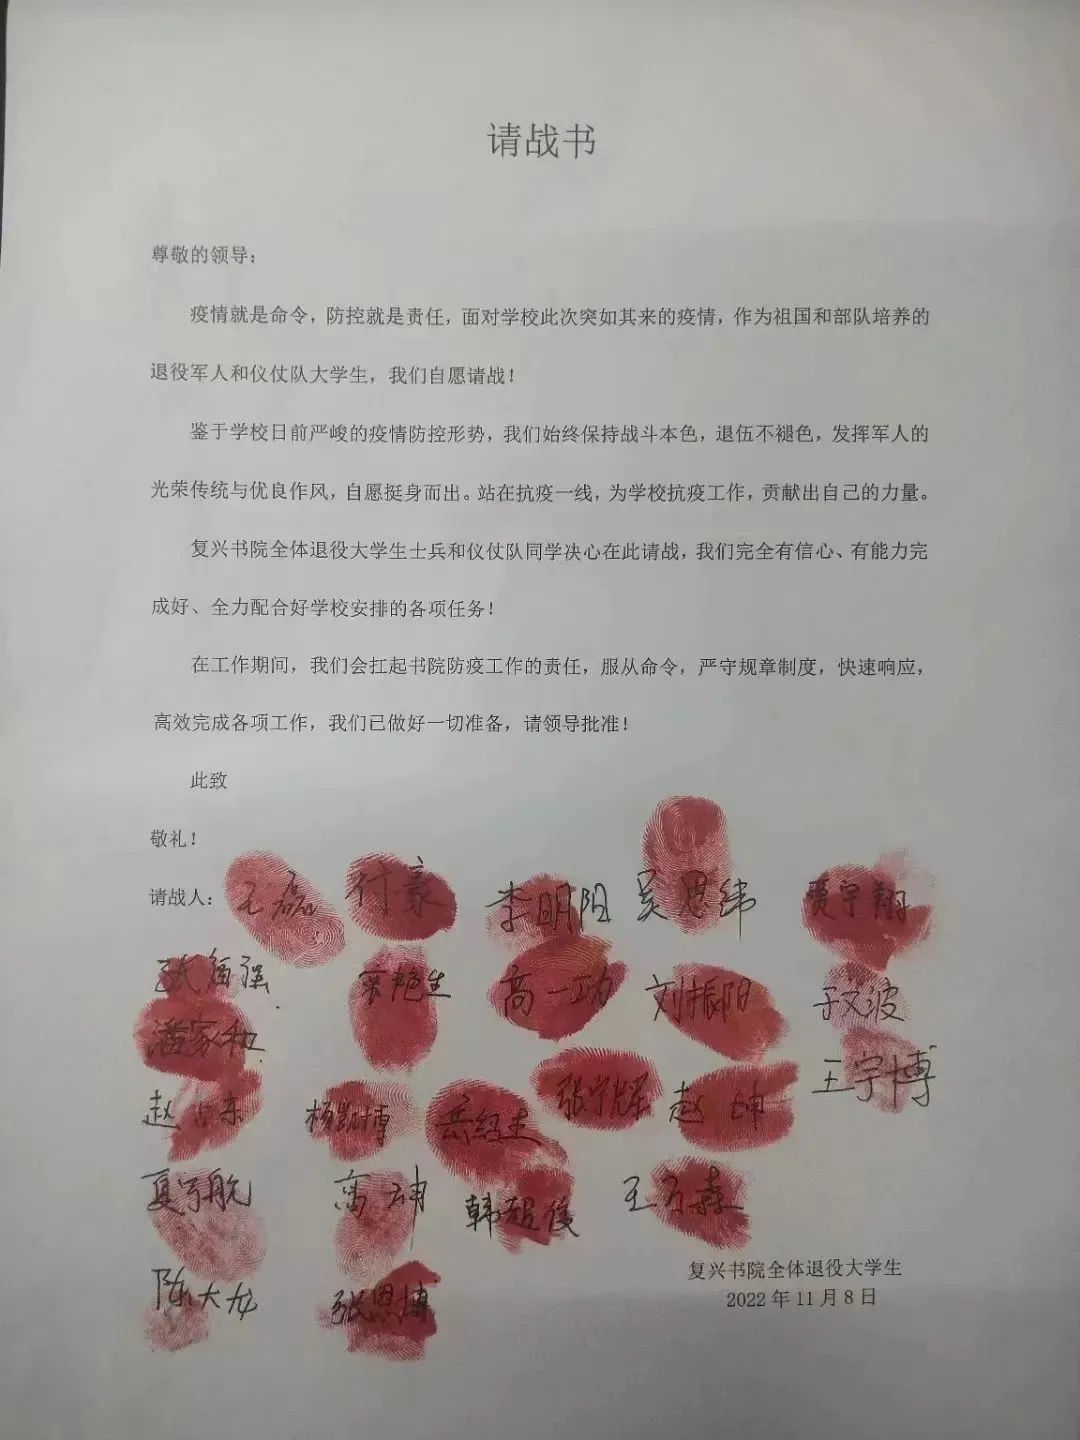 请战书
尊敬的领导：
疫情就是命令，防控就是责任，面对学校此次突如其来的疫情，作为祖国和部队培养的
退役军人和仪仗队大学生，我们自愿请战！
鉴于学校日前严峻的疫情防控形势，我们始终保持战斗本色，退伍不褪色，发挥军人的
光荣传统与优良作风，自愿挺身而出。站在抗疫一线，为学校抗疫工作，贡献出自己的力量。
复兴书院全体退役大学生士兵和仪仗队同学决心在此请战，我们完全有信心、有能力完
成好、全力配合好学校安排的各项任务！
在工作期间，我们会扛起书院防疫工作的责任，服从命令，严守规章制度，快速响应，
高效完成各项工作，我们已做好一切准备，请领导批准！
此致
敬礼！
请战人：王磊 付豪 李明阳 吴思纬 贾宇翔
高一功 刘振阳 于文波
潘家和 王宁博
杨凯博 张宁辉 赵坤
高坤 韩超俊
陈大龙 张恩博
复兴书院全体退役大学生
2022年11月8日